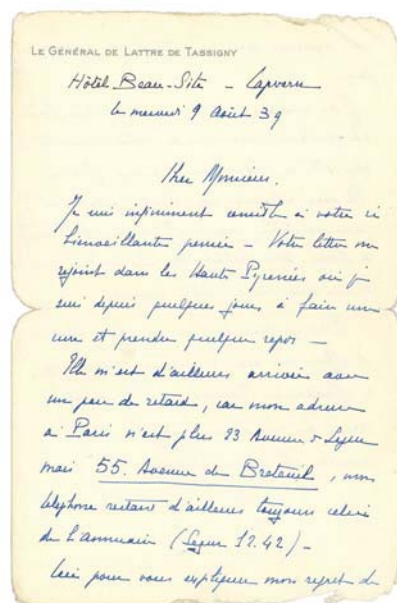 LE GÉNÉRAL DE LATTRE DE TASSIGNY
Hôtel Beau-Site – Capvern
le mercredi 9 Août 39
Cher Monsieur.
Je suis infiniment sensible à votre si
bienveillante pensée – Votre lettre me
rejoint dans les Hautes Pyrenées où je
suis depuis quelques jours à faire une
cure et prendre quelque repos –
Elle m'est d'ailleurs arrivée avec
un peu de retard, car mon adresse
à Paris n'est plus 93 Avenue de Ségur
mais 55. Avenue de Breteuil, mon
téléphone restant d'ailleurs toujours celui
de l'Annuaire (Segur 12.42) –
Ceci pour vous expliquer mon regret de